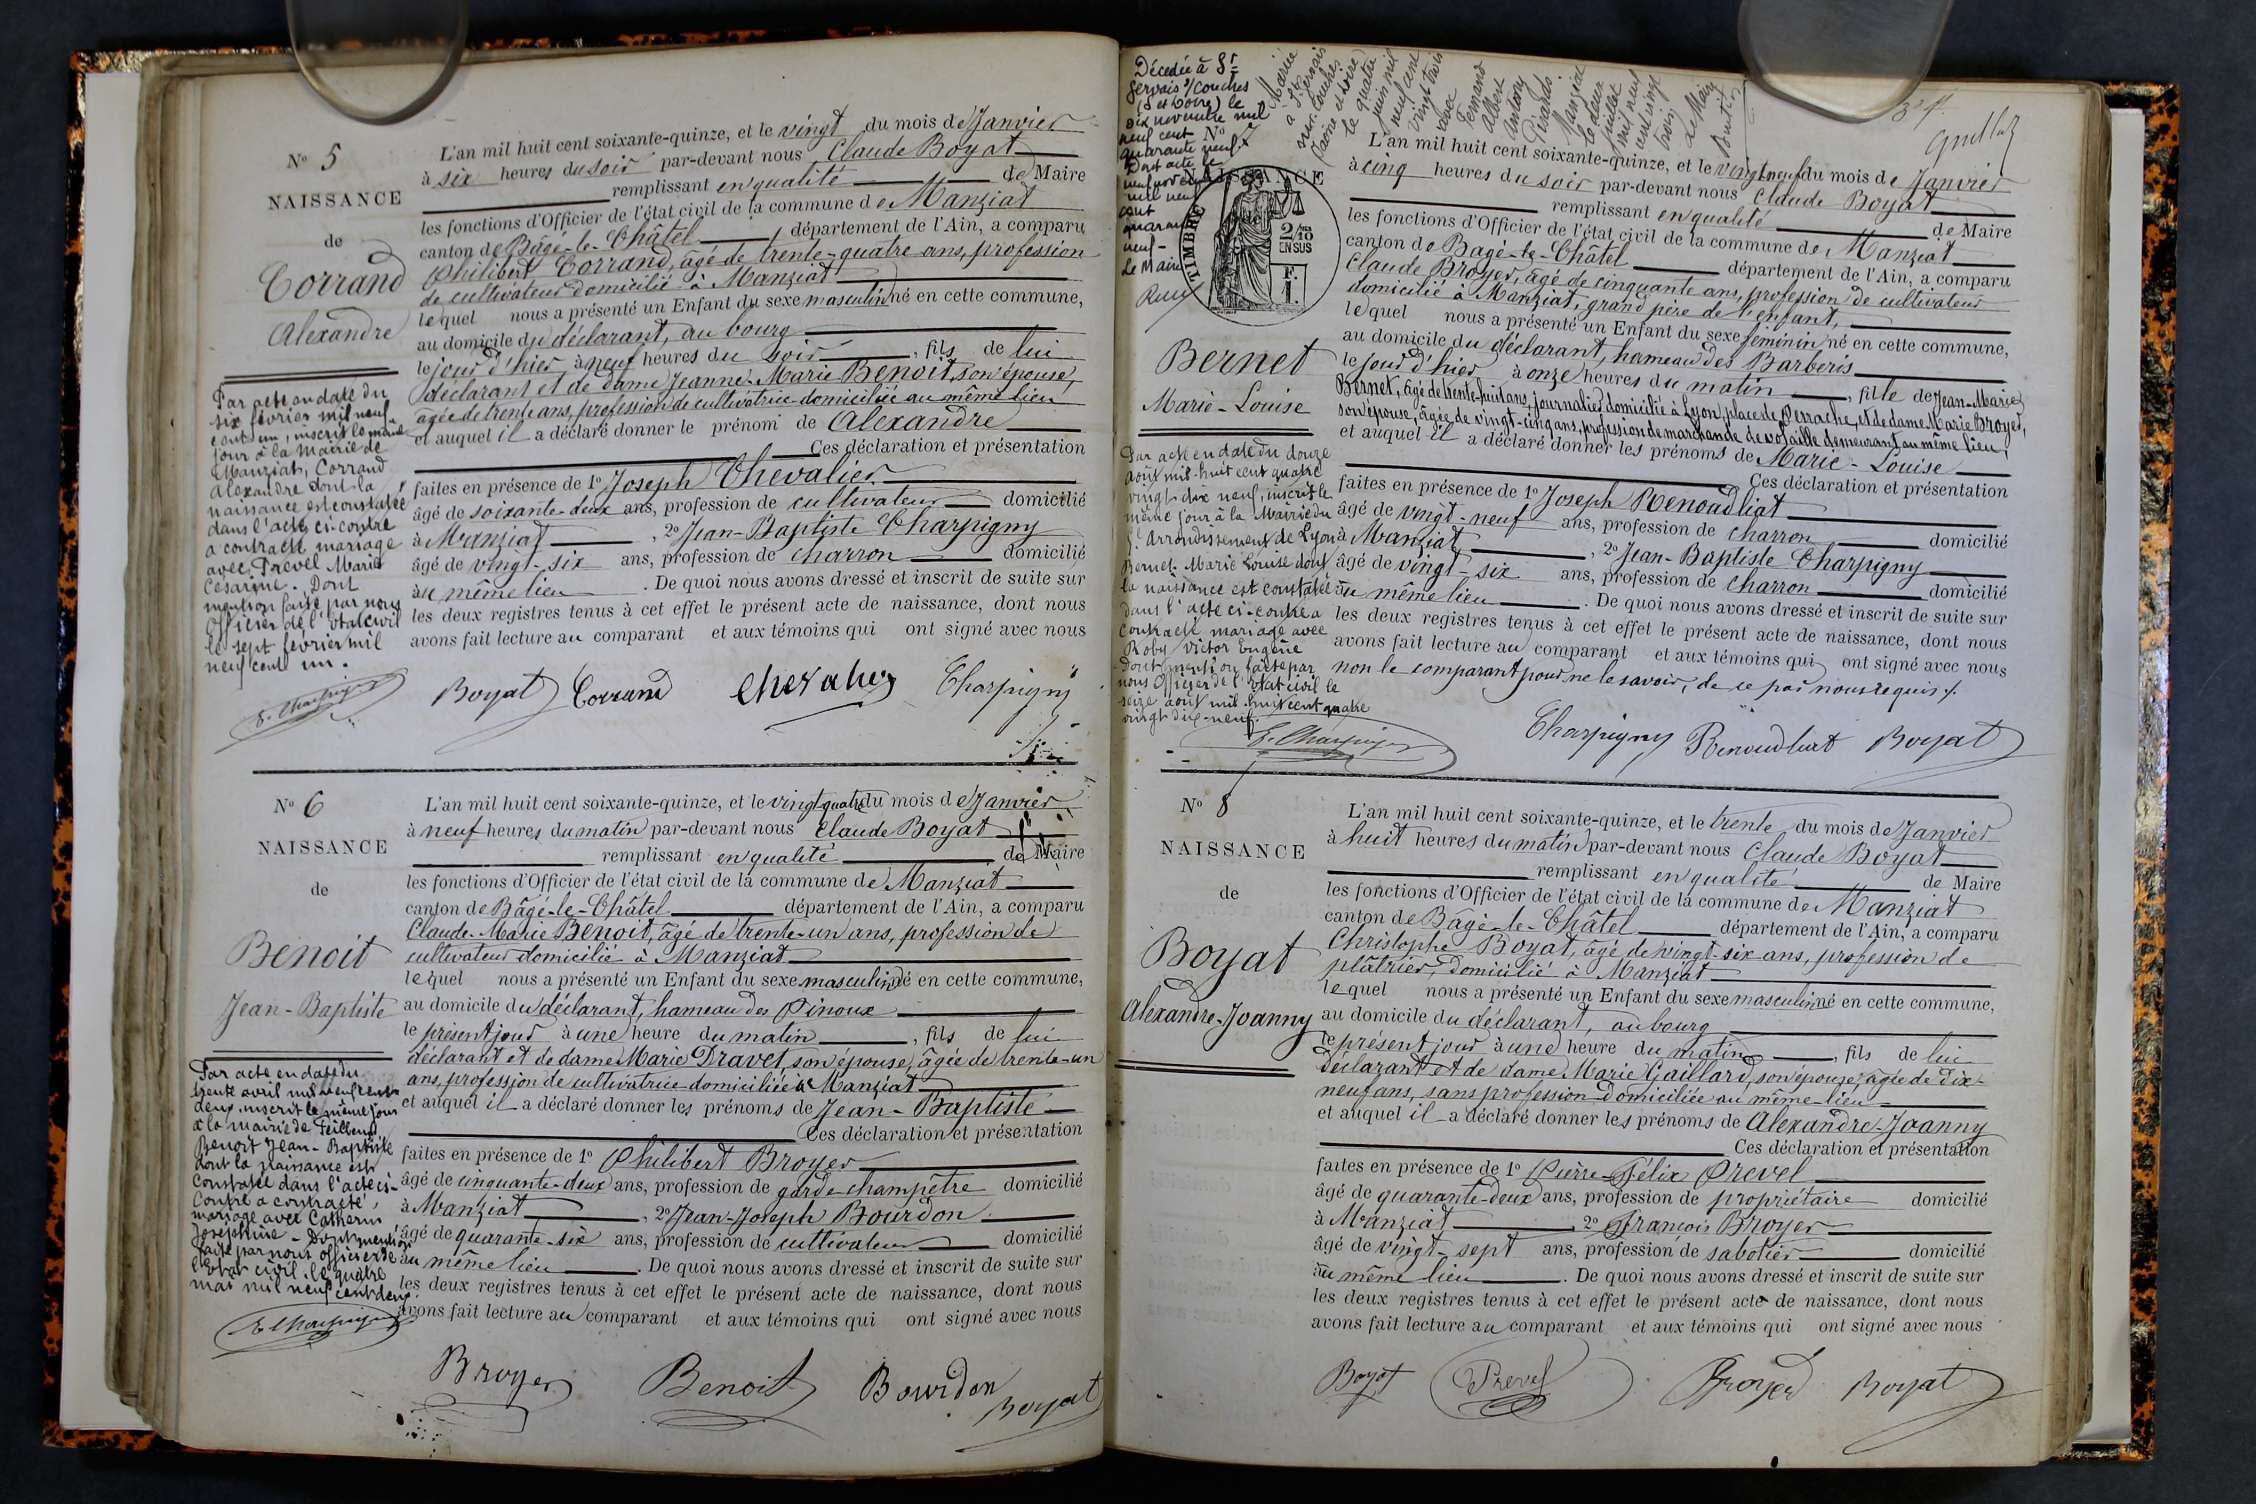 N° 5
NAISSANCE
de
Corrand
Alexandre
Par acte en date du
six février mil neuf
cent un, inscrit le même
jour à la Mairie de
Manziat, Corrand
Alexandre dont la
naissance est constatée
dans l'acte ci-contre
a contracté mariage
avec Prevel Marie
Césarine. Dont
mention faite par nous
Officier de l'Etat civil
le sept février mil
neuf cent un.
L'an mil huit cent soixante-quinze, et le vingt du mois de Janvier
à six heures du soir par-devant nous Claude Boyat
remplissant en qualité de Maire
les fonctions d'Officier de l'état civil de la commune de Manziat
canton de Bâgé-le-Châtel, département de l'Ain, a comparu
Philibert Corrand, âgé de trente-quatre ans, profession
de cultivateur domicilié à Manziat
lequel nous a présenté un Enfant du sexe masculin né en cette commune,
au domicile du déclarant, au bourg
le jour d'hier à neuf heures du soir, fils de lui
déclarant et de dame Jeanne-Marie Benoit, son épouse,
âgée de trente ans, profession de cultivatrice domiciliée au même lieu
et auquel il a déclaré donner le prénom de Alexandre
Ces déclaration et présentation
faites en présence de 1° Joseph Chevalier
âgé de soixante-deux ans, profession de cultivateur domicilié
à Manziat, 2° Jean-Baptiste Charpigny
âgé de vingt-six ans, profession de charron domicilié
au même lieu. De quoi nous avons dressé et inscrit de suite sur
les deux registres tenus à cet effet le présent acte de naissance, dont nous
avons fait lecture au comparant et aux témoins qui ont signé avec nous
Boyat Corrand Chevalier Charpigny
N° 6
NAISSANCE
de
Benoit
Jean-Baptiste
Par acte en date du
trente avril mil neuf cent
deux, inscrit le même jour
à la mairie de Feillens
Benoit Jean-Baptiste
dont la naissance est
constatée dans l'acte ci-
contre a contracté
mariage avec Catherin
Joséphine - Dont mention
faite par nous officier de
l'Etat civil le quatre
mai mil neuf cent deux.
L'an mil huit cent soixante-quinze, et le vingt-quatre du mois de Janvier
à neuf heures du matin par-devant nous Claude Boyat
remplissant en qualité de Maire
les fonctions d'Officier de l'état civil de la commune de Manziat
canton de Bâgé-le-Châtel département de l'Ain, a comparu
Claude-Marie Benoit, âgé de trente-un ans, profession de
cultivateur domicilié à Manziat
lequel nous a présenté un Enfant du sexe masculin né en cette commune,
au domicile du déclarant, hameau des Pinoux
le présent jour à une heure du matin, fils de lui
déclarant et de dame Marie Dravet, son épouse, âgée de trente-un
ans, profession de cultivatrice domiciliée à Manziat
et auquel il a déclaré donner les prénoms de Jean-Baptiste
Ces déclaration et présentation
faites en présence de 1° Philibert Broyer
âgé de cinquante-deux ans, profession de garde-champêtre domicilié
à Manziat, 2° Jean-Joseph Bourdon
âgé de quarante-six ans, profession de cultivateur domicilié
au même lieu. De quoi nous avons dressé et inscrit de suite sur
les deux registres tenus à cet effet le présent acte de naissance, dont nous
avons fait lecture au comparant et aux témoins qui ont signé avec nous
Broyer Benoit Bourdon Boyat
Décédée à St
Gervais s/Couches
(S et Loire) le
dix novembre mil
neuf cent
quarante neuf.
Dont acte le
mil neuf
cent
quarante
neuf -
Le Maire
Mariée
à St Gervais
sur Couches
Saône et Loire
le quatre
juin mil
neuf cent
vingt trois
avec
Fernand
Albert
Antony
Manziat
le deux
juillet
mil neuf
cent vingt
trois
Le Maire
N° 7
NAISSANCE
TIMBRE
2/10
EN SUS
F.
1.
Bernet
Marie-Louise
Par acte en date du douze
août mil huit cent quatre
vingt dix neuf, inscrit le
même jour à la Mairie du
Arrondissement de Lyon
Bernet Marie Louise dont
la naissance est constatée
dans l'acte ci-contre a
contracté mariage avec
Roby Victor Eugène
dont mention faite par
nous Officier de l'Etat civil le
seize août mil huit cent quatre
vingt dix-neuf.
L'an mil huit cent soixante-quinze, et le vingt-neuf du mois de Janvier
à cinq heures du soir par-devant nous Claude Boyat
remplissant en qualité de Maire
les fonctions d'Officier de l'état civil de la commune de Manziat
canton de Bagé-le-Châtel département de l'Ain, a comparu
Claude Broyer, âgé de cinquante ans, profession de cultivateur
domicilié à Manziat, grand père de l'enfant,
lequel nous a présenté un Enfant du sexe féminin né en cette commune,
au domicile du déclarant, hameau des Barberis
le jour d'hier à onze heures du matin, fille de Jean-Marie
Bernet, âgé de trente-huit ans, journalier domicilié à Lyon, place de Perrache, et de dame Marie Broyer,
son épouse, âgée de vingt-cinq ans, profession de marchande de volaille demeurant au même lieu,
et auquel il a déclaré donner les prénoms de Marie-Louise
Ces déclaration et présentation
faites en présence de 1° Joseph Renoudliat
âgé de vingt-neuf ans, profession de charron domicilié
à Manziat, 2° Jean-Baptiste Charpigny
âgé de vingt-six ans, profession de charron domicilié
au même lieu. De quoi nous avons dressé et inscrit de suite sur
les deux registres tenus à cet effet le présent acte de naissance, dont nous
avons fait lecture au comparant et aux témoins qui ont signé avec nous
non le comparant pour ne le savoir, de ce par nous requis.
Charpigny Boyat
N° 8
NAISSANCE
de
Boyat
Alexandre-Joanny
L'an mil huit cent soixante-quinze, et le trente du mois de Janvier
à huit heures du matin par-devant nous Claude Boyat
remplissant en qualité de Maire
les fonctions d'Officier de l'état civil de la commune de Manziat
canton de Bâgé-le-Châtel département de l'Ain, a comparu
Christophe Boyat, âgé de vingt-six ans, profession de
plâtrier, domicilié à Manziat
lequel nous a présenté un Enfant du sexe masculin né en cette commune,
au domicile du déclarant, au bourg
le présent jour à une heure du matin, fils de lui
déclarant et de dame Marie Gaillard, son épouse, âgée de dix-
neuf ans, sans profession domiciliée au même lieu
et auquel il a déclaré donner les prénoms de Alexandre-Joanny
Ces déclaration et présentation
faites en présence de 1° Pierre-Félix Prevel
âgé de quarante-deux ans, profession de propriétaire domicilié
à Manziat 2° François Broyer
âgé de vingt-sept ans, profession de sabotier domicilié
au même lieu. De quoi nous avons dressé et inscrit de suite sur
les deux registres tenus à cet effet le présent acte de naissance, dont nous
avons fait lecture au comparant et aux témoins qui ont signé avec nous
Boyat Prevel Broyer Boyat